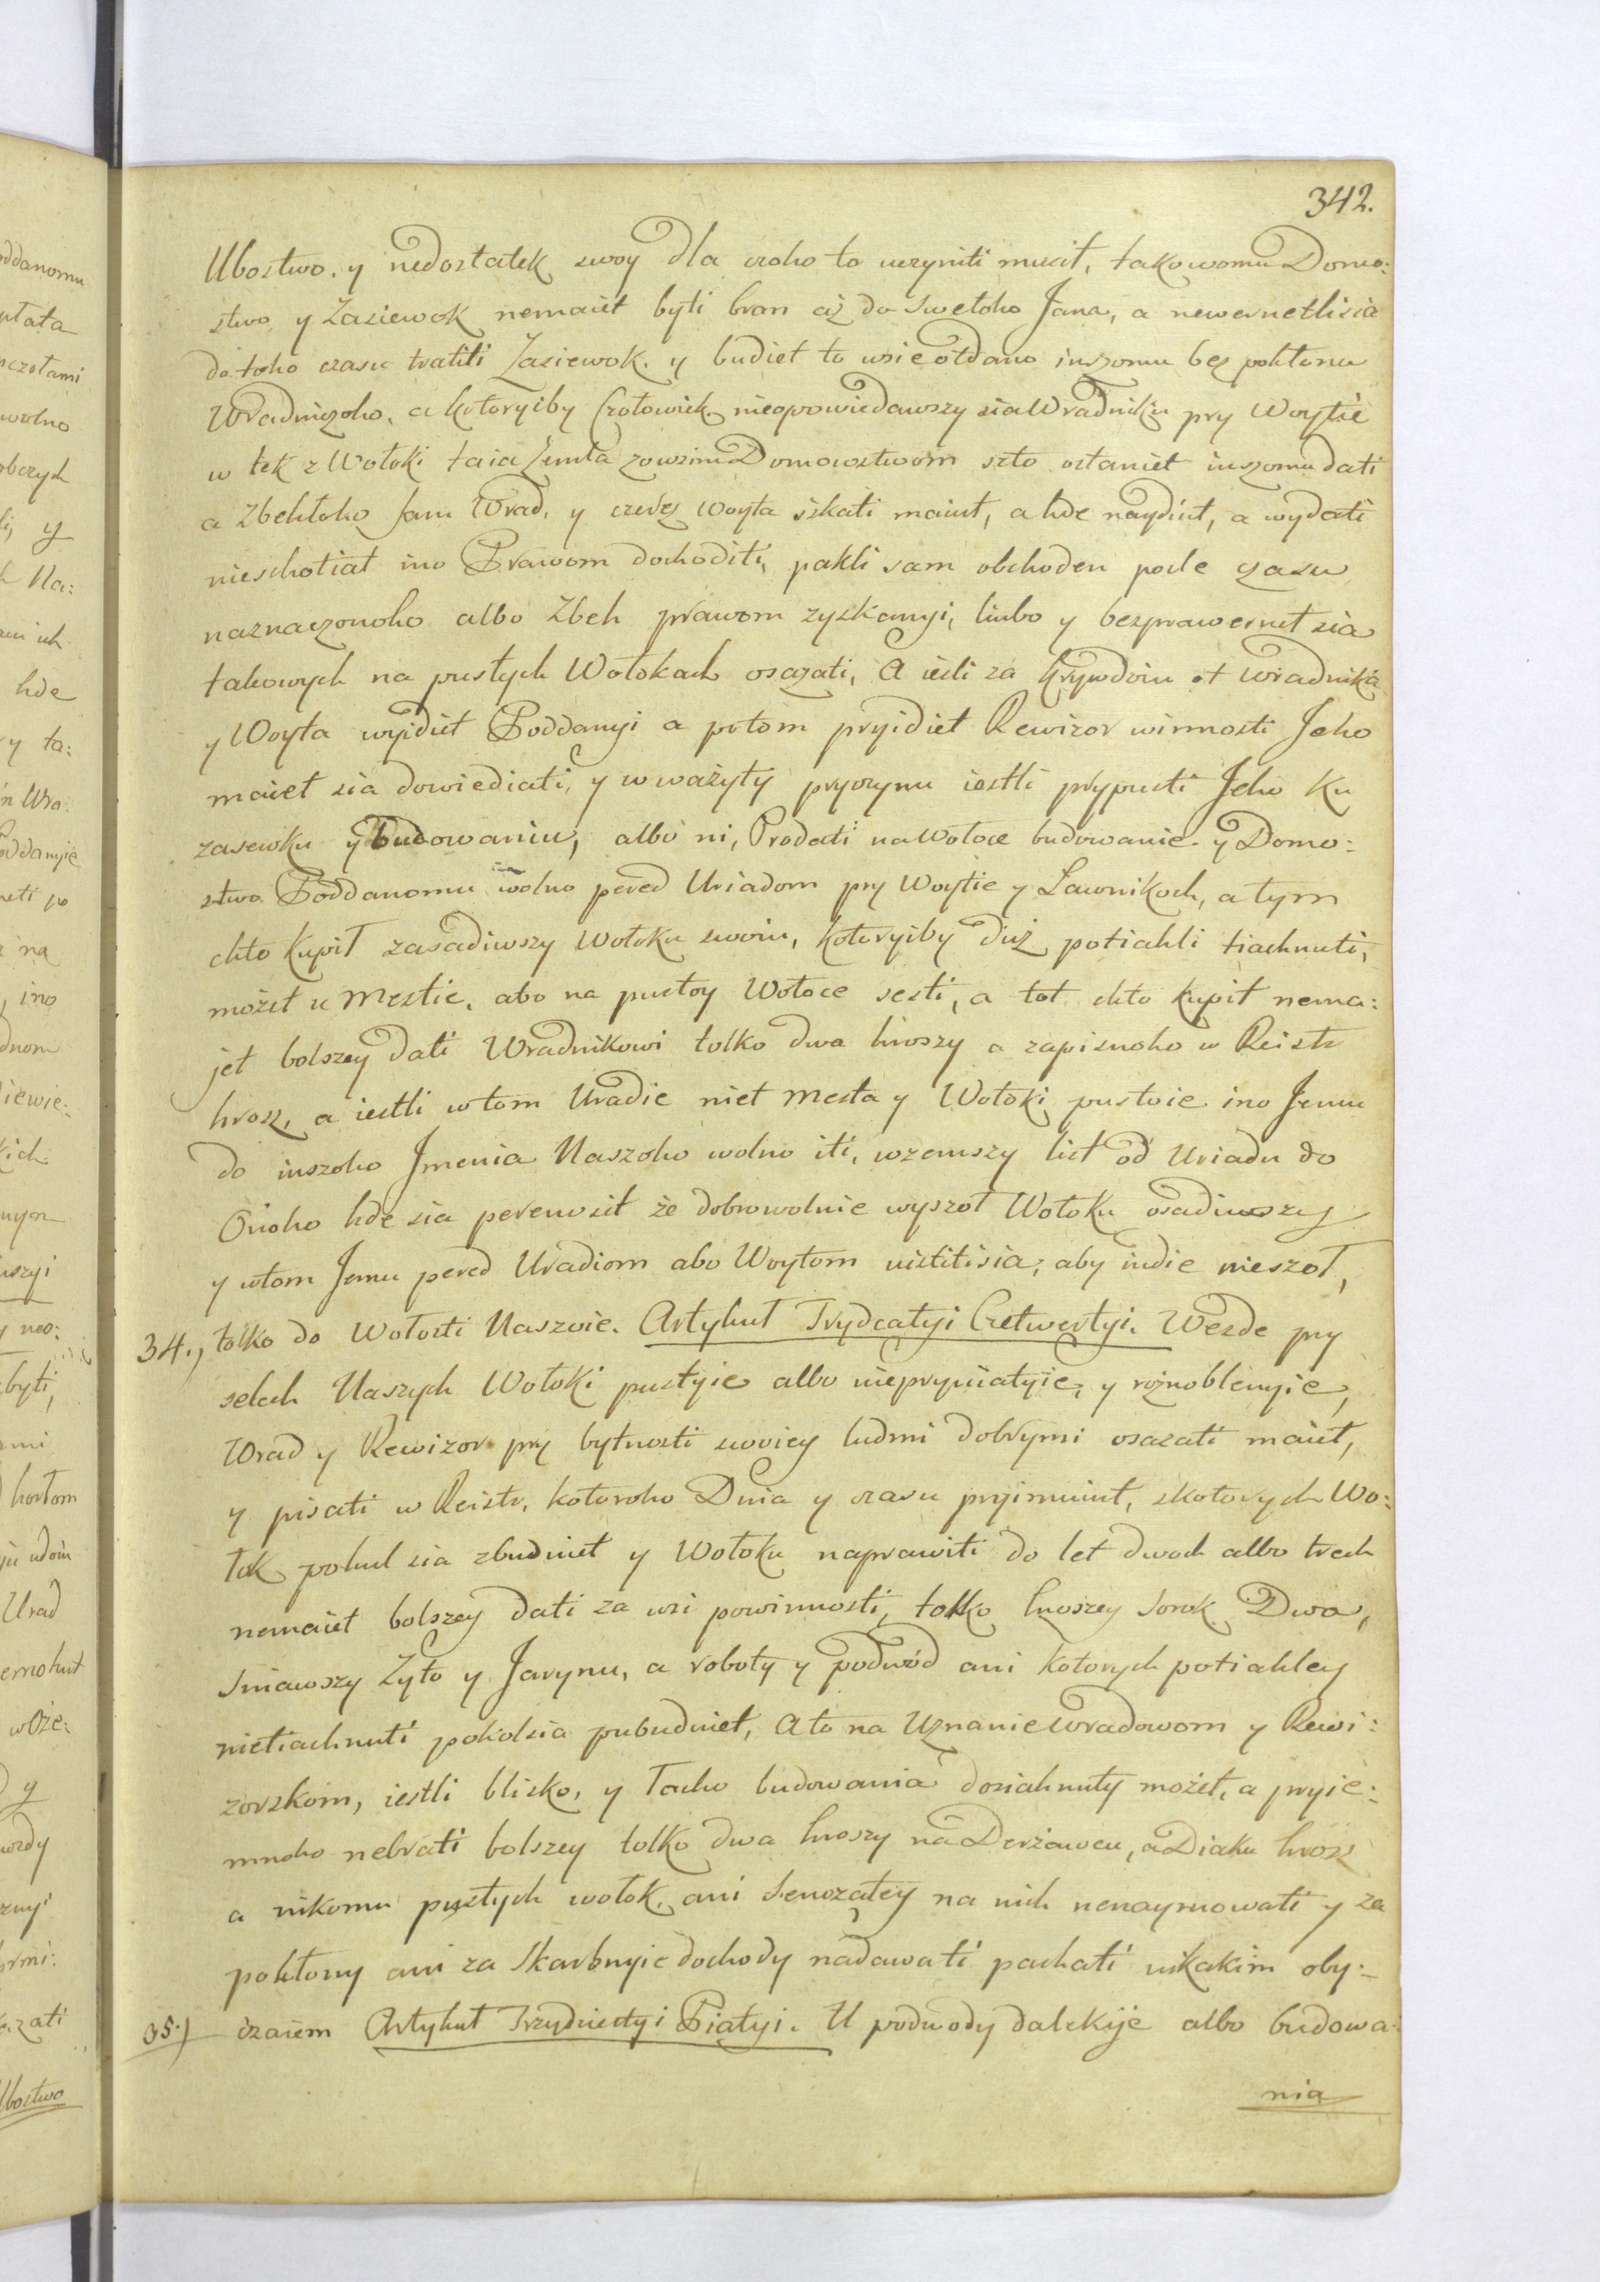 342.
Ubostwo, y nedostatek swoy dla czoho to uczyniti musit, takowomu Domo:
stwo y Zasiewok nemaiet byti bran aż do Swetoho Jana, a newernetlisia
do toho czasu tratiti Zasiewok, y budiet to wsie otdano inszomu bez pokłonu
Wradniczoho, a kotoryiby Czołowiek nieopowiedawszy sia Wradniku pry Woytie
w tek z Wołoki taia Zemla zowsim Domowstwom szto ostaniet inszomu dati
a Zbehłoho sam Wrad, y czerez Woyta iskati maiut, a hde naydut, a wydati
nieschotiat ino Prawom dochoditi, pakli sam obchoden podle czasu
naznaczonoho albo Zbeh prawom zyskanyi, liubo y bezprawernet sia
takowych na pustych Wołokach osazati, A iesli za Krywdoiu ot Wradnika
y Woyta wyidiet Poddanyi a potom pryidiet Rewizor winnosti Jeho
maiet sia dowiediati, y wważyty pryczynu iestli prypusti Jeho Ku
zasewku y budowaniu, albo ni, Prodati na Wołoce budowanie y Domo:
stwo Poddanomu wolno pered Uriadom pry Woytie y Ławnikoch, a tym
chto Kupit zasadiwszy Wołoku swoiu, kotoryiby Diuż potiahli tiachnuti,
możet u Mestie, abo na pustoy Wołoce sesti, a tot chto kupit nema:
jet bolszey dati Wradnikowi tolko dwa hroszy a zapisnoho w Reistr
hrosz, a iestli wtom Uradie niet Mesta y Wołoki pustoie ino Jemu
do inszoho Jmenia Naszoho wolno iti, wzemszy list od Uriadu do
Onoho hde sia perenosit że dobrowolnie wyszoł Wołoku osadiwszy
y wtom Jemu pered Uradiom abo Woytom uistitisia, aby indie nieszoł,
34., tolko do Wołosti Naszoie. Artykuł Trydcatyi Czetwertyi. Wezde pry
sełach Naszych Wołoki pustyie albo nieprymiatyie, y rożnoblenyie,
Wrad y Rewizor pry bytnosti swoiey ludmi dobrymi osazati maiet,
y pisati w Reistr, kotoroho Dnia y czasu pryimuiut, s kotorych Wo:
łok pokul sia zbudniet y Wołoku naprawiti do let dwoch albo trech
nemaiet bolszey dati za wsi powinnosti, tolko hroszey Sorok Dwa,
Sniawszy Zyto y Jarynu, a roboty y podwód ani kotorych potiahley
nietiachnuti pokolsia pubudniet, A to na Uznanie Wradowom y Rewi:
zorskom, iestli blisko, y Tacho budowania dosiahnuty możet, a pryie:
mnoho nebrati bolszey tolko dwa hroszy na Derżawcu, a Diaku hrosz
a nikomu pustych wołok, ani Senozatey na nich nenaymowati y za
pokłony ani za Skarbnyie dochody nadawati pachati nikakim oby:
35.) czaiem Artykuł Trzydciestyi Piątyi. U podwody dalekije albo budowa:
nia